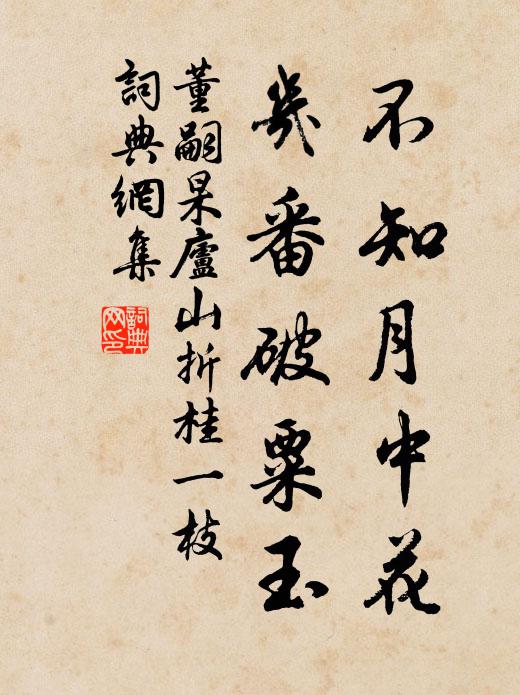 不知月中花
幾番破粟玉
董嗣杲廬山折桂一枝
詞典網集
詞典
网印